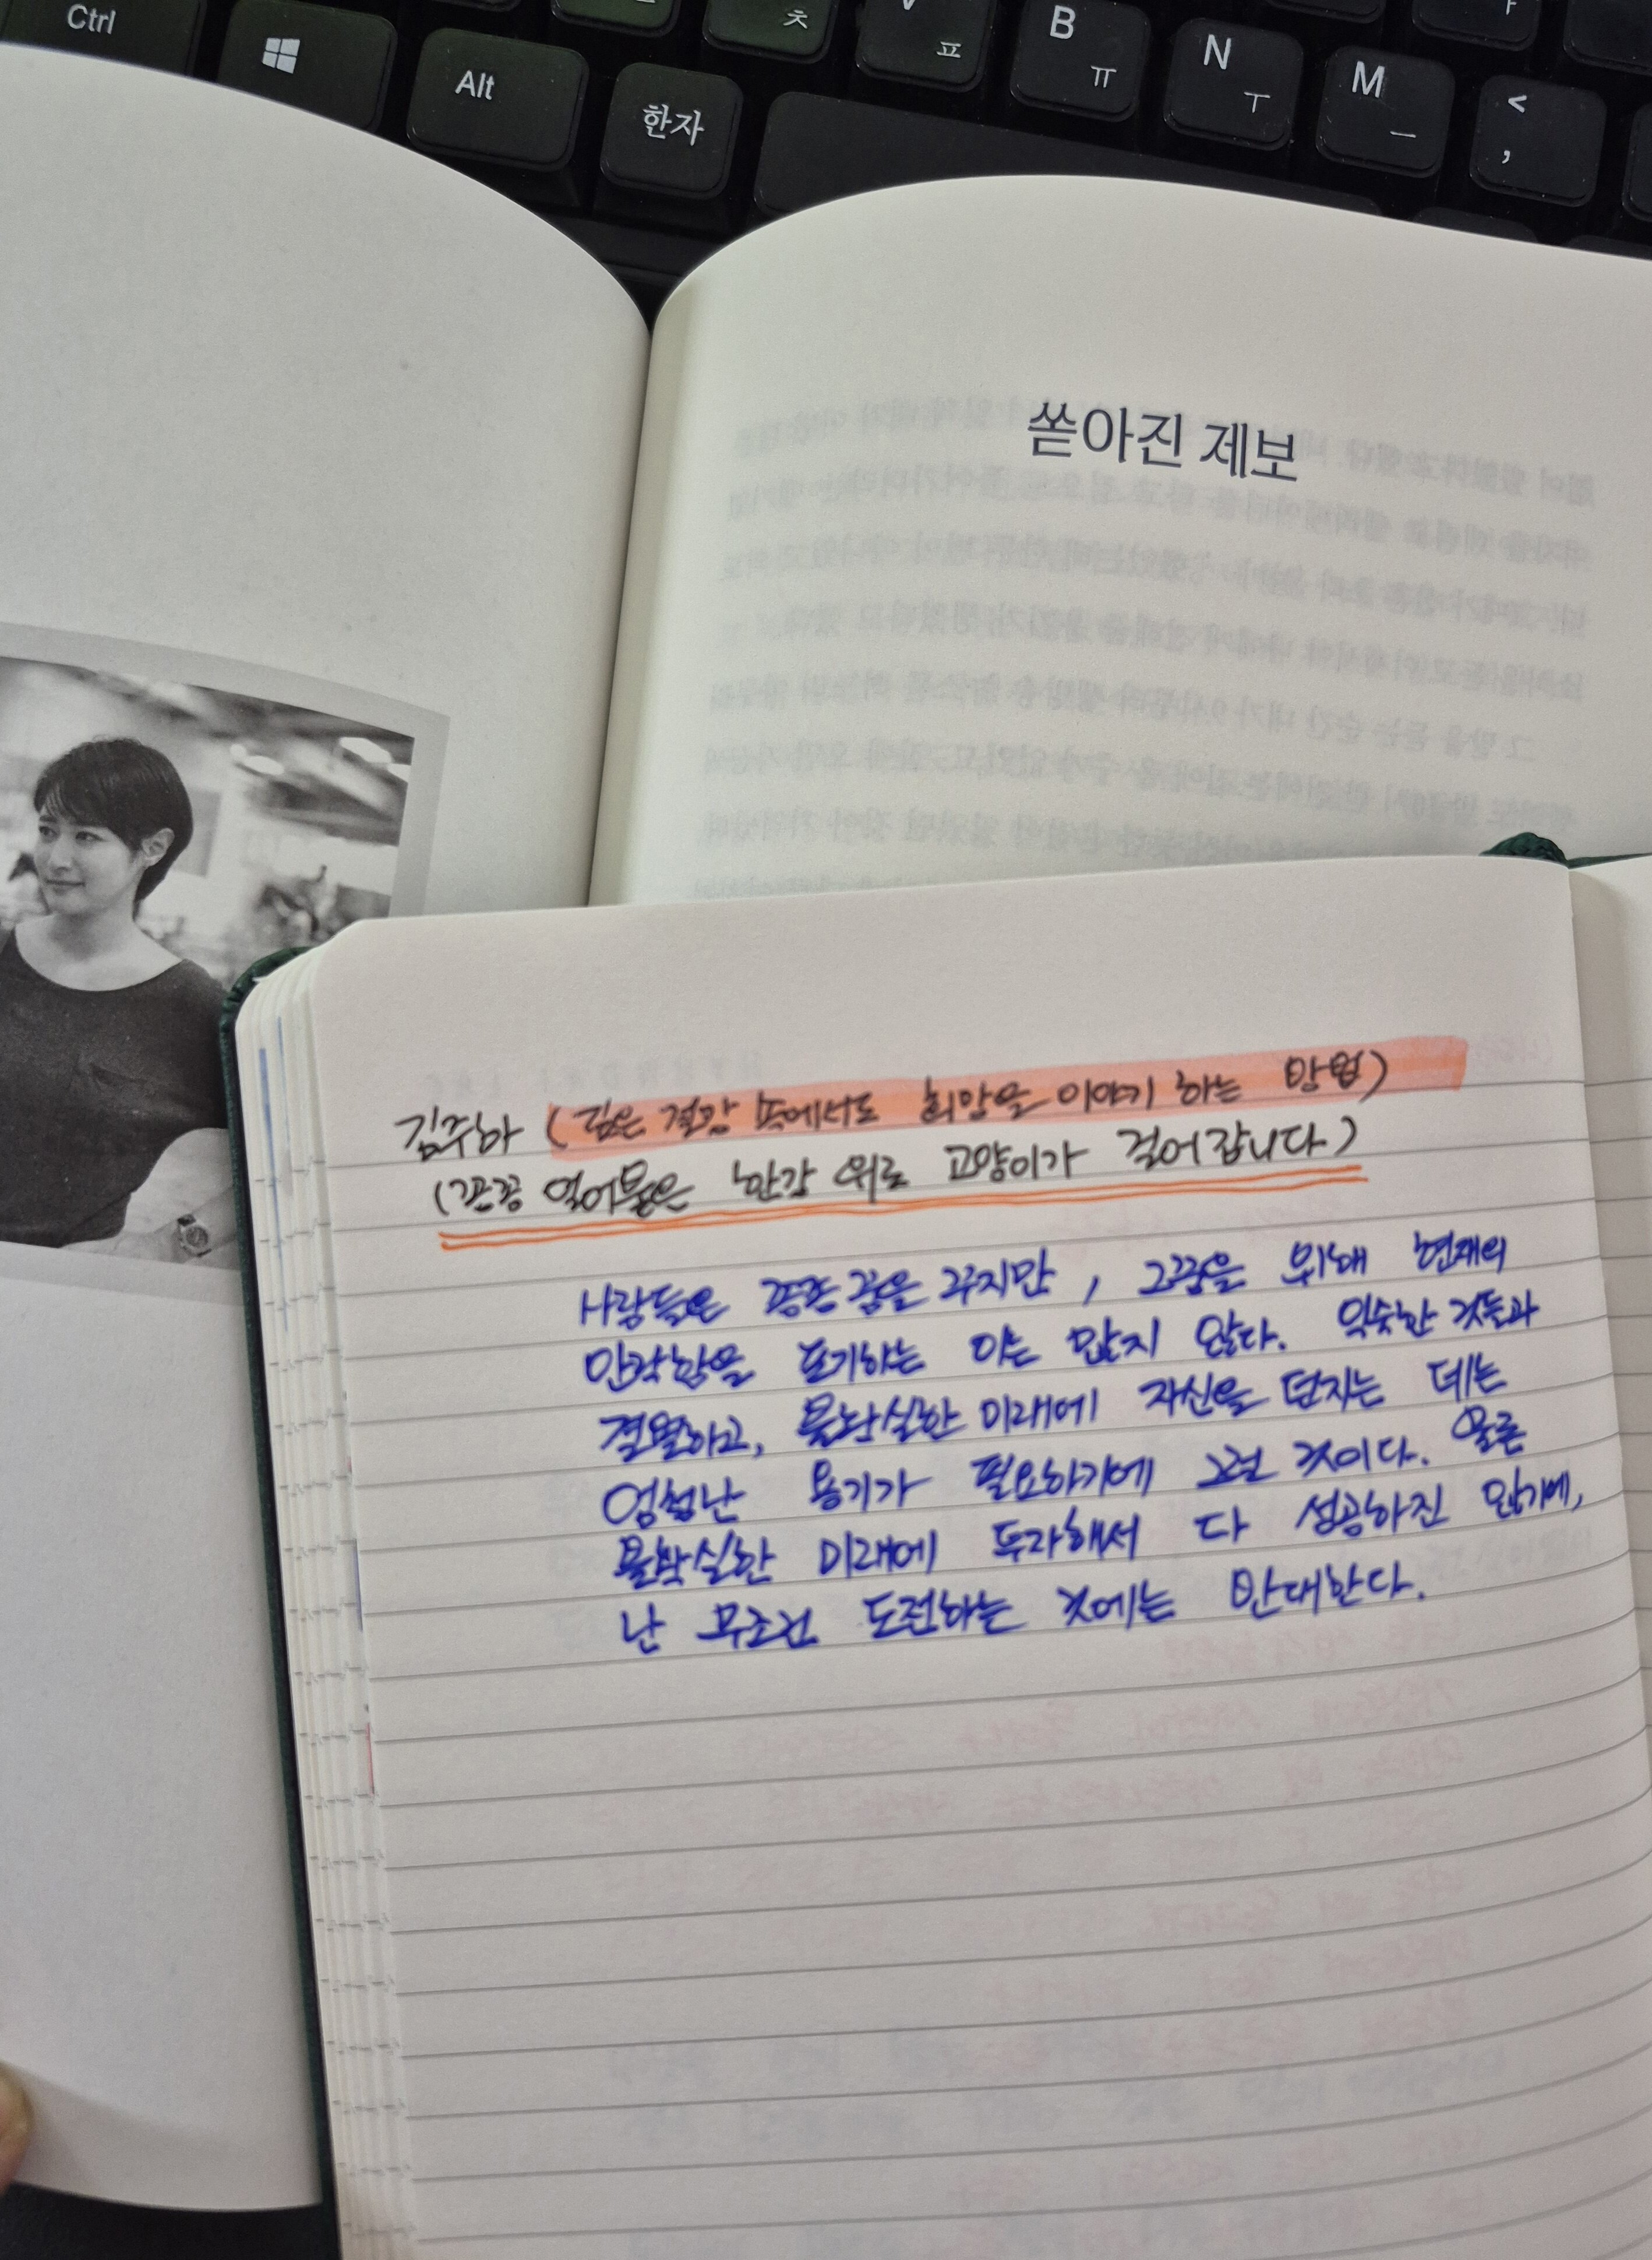 Ctrl
Alt
한자
ㅊ
V
ㅍ
B
ㅠ
N
ㅜ
M
ㅡ
<
,
쏟아진 제보
김주하 (깊은 절망 속에서도 희망을 이야기 하는 방법)
(꽝꽝 얼어붙은 한강 위로 고양이가 걸어갑니다)
사람들은 종종 꿈을 꾸지만, 그 꿈을 위해 현재의
안락함을 포기하는 이는 많지 않다. 익숙한 것들과
결별하고, 불확실한 미래에 자신을 던지는 데는
엄청난 용기가 필요하기에 그런 것이다. 물론
불확실한 미래에 투자해서 다 성공하진 않기에,
난 무조건 도전하는 것에는 반대한다.